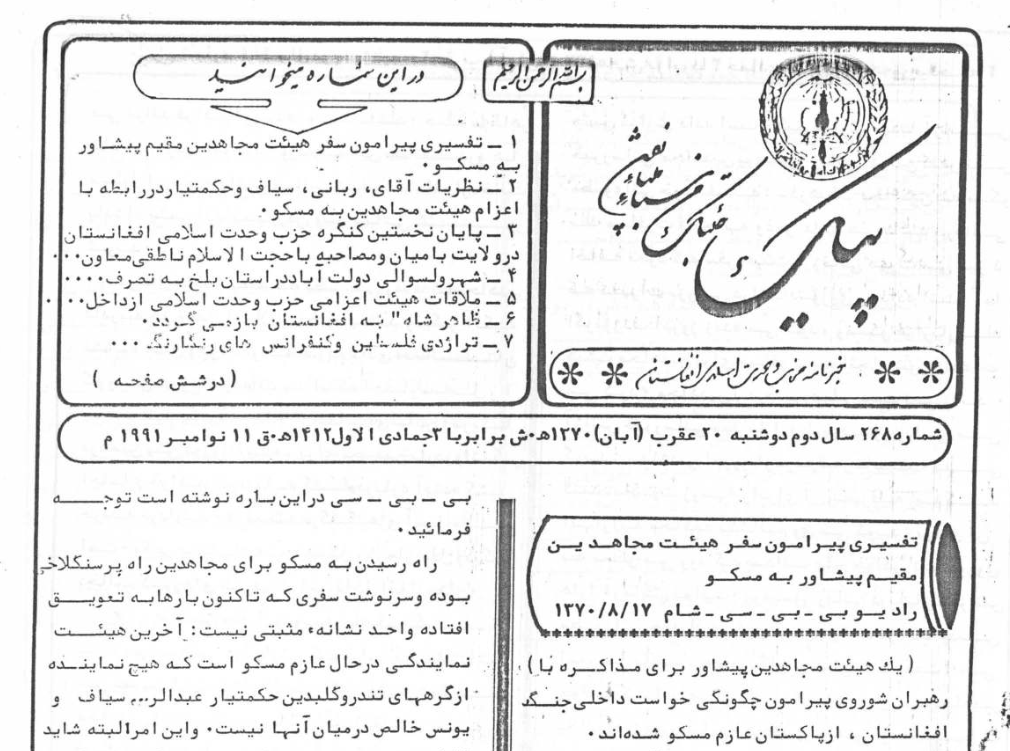 بسم الله الرحمن الرحیم
خبرنامه حزب وحدت اسلامی افغانستان
در این شماره میخوانید
۱ ــ تفسیری پیرامون سفر هیئت مجاهدین مقیم پیشاور
بـه مسکـو ۰
۲ ــ نظریات آقای، ربانی، سیاف وحکمتیاردررابطه با
اعزام هیئت مجاهدین بـه مسکو ۰
۳ ــ پایان نخستین کنگره حزب وحدت اسلامی افغانستان
درولایت بامیان ومصاحبه باحجت الاسلام ناطقی معاون۰۰۰
۴ ــ شهرولسوالی دولت آباددراستان بلخ بـه تصرف۰۰۰۰
۵ ــ ملاقات هیئت اعزامی حزب وحدت اسلامی ازداخل۰۰۰۰
۶ ــ ظاهر شاه" بـه افغانستان بازمی گردد۰
۷ ــ تراژدی فلسطین وکنفرانس های رنگارنگ ۰۰۰
(درشش صفحـه )
شماره۲۶۸ سال دوم دوشنبه ۲۰ عقرب (آبان)۱۳۷۰هـ۰ش برابربا ۳جمادی الاول۱۴۱۲هـ۰ق ۱۱ نوامبـر ۱۹۹۱ م
تفسیری پیـرامـون سفـر هیئـت مجاهـد یـن
مقیـم پیشـاور بـه مسکــو
راد یـو بـی ـ بـی ـ سـی ـ شـام ۱۳۷۰/۸/۱۷
( یك هیئت مجاهدین پیشاور برای مـذاکــره بـا )
رهبران شوروی پیرامون چگونگی خواست داخلی جنـگ
افغانستان ، ازپاکستان عازم مسکو شده‌اند۰
بـی ـ بـی ـ سـی دراین بـاره نوشته است توجــــه
فرمائید۰
راه رسیدن بـه مسکو برای مجاهدین راه پرسنگلاخی
بـوده وسرنوشت سفری کـه تاکنون بارهابـه تعویــق
افتاده واحـد نشانـه۰ مثبتی نیست: آخرین هیئــت
نمایندگـی درحال عازم مسکو است کـه هیچ نماینـده
ازگرههـای تندروگلبدین حکمتیار عبدالر... سیاف و
یونس خالص درمیان آنـها نیست۰ واین امرالبته شاید